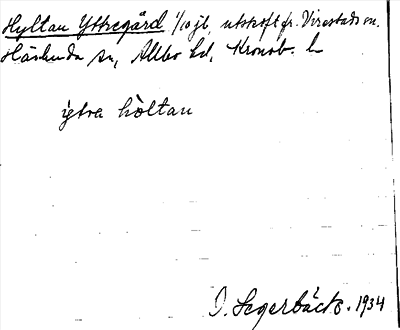 Hyltan Yttregård 1/10 jb, utskift fr. Virestads sn.
Häslunda sn, Allbo hd, Kronob. l.
ytra hòltan
O. Segerbäck. 1934